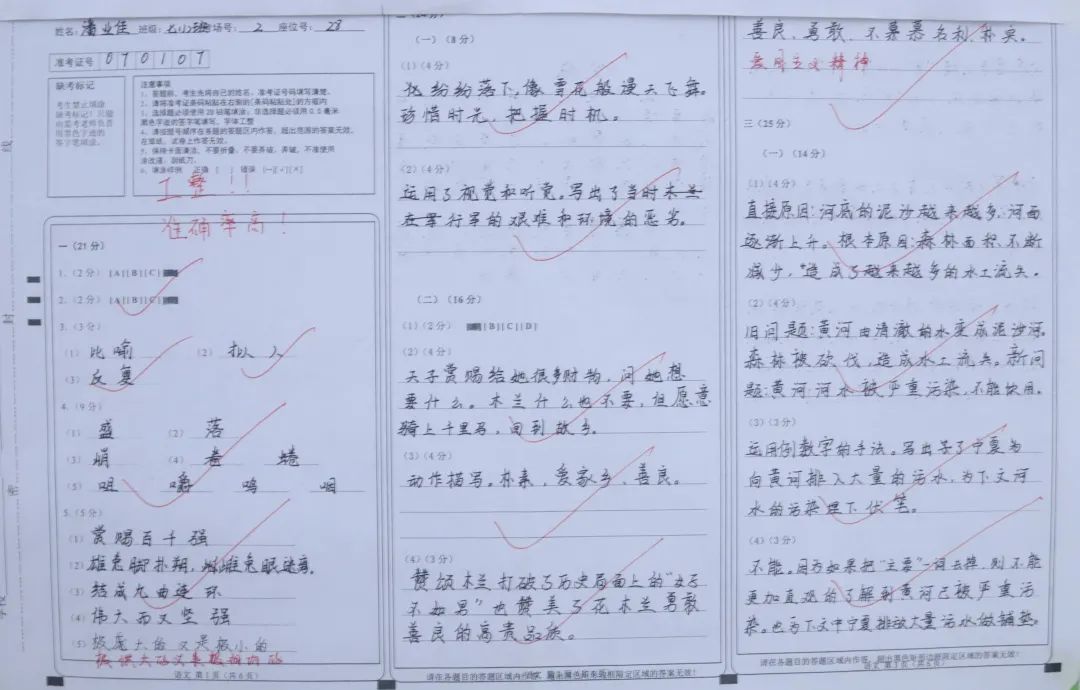 姓名：潘业佳 班级：七小班 考场号：2 座位号：28
准考证号 070107
缺考标记
考生禁止填涂
缺考标记！只能
由监考老师负责
用黑色字迹的
签字笔填涂。
注意事项
1、答题前，考生先将自己的姓名、准考证号码填写清楚。
2、请将准考证条码粘贴在右侧的[条码粘贴处]的方框内
3、选择题必须使用2B铅笔填涂；非选择题必须用0.5毫米
黑色字迹的签字笔填写，字体工整
4、请按题号顺序在各题的答题区内作答，超出范围的答案无效，
在草纸、试卷上作答无效。
5、保持卡面清洁，不要折叠、不要弄破、弄皱，不准使用
涂改液、刮纸刀。
6、填涂样例 正确 错误
工整！！
准确率高！
一（21分）
1.（2分）[A][B][C]
2.（2分）[A][B][C]
3.（3分）
（1）比喻 （2）拟人
（3）反复
4.（9分）
（1）盛 （2）落
（3）娟 （4）卷 蜷
（5）咀 嚼 呜 咽
5.（5分）
（1）赏赐百千强
（2）雄兔脚扑朔，雌兔眼迷离。
（3）结成九曲连环
（4）伟大而又坚强
（5）极庞大的又是极小的
语文 第1页（共6页）
（一）（8分）
（1）（4分）
纷纷落下，像雪花般漫天飞舞。
珍惜时光，把握时机。
（2）（4分）
运用了视觉和听觉。写出了当时木兰
在军行军的艰难和环境的恶劣。
（二）（16分）
（1）（2分） [B][C][D]
（2）（4分）
天子赏赐给她很多财物，问她想
要什么。木兰什么也不要，但愿意
骑上千里马，回到故乡。
（3）（4分）
动作描写。朴素，爱家乡、善良。
（4）（3分）
赞颂木兰打破了历史局面上的“女子
不如男”也赞美了花木兰勇敢
善良的高贵品质。
请在各题目的答题区域内作答，超出黑色矩形边框限定区域的答案无效！
善良、勇敢、不慕慕名利、朴实。
爱国主义精神
三（25分）
（一）（14分）
（1）（4分）
直接原因：河底的泥沙越来越多，河面
逐渐上升。根本原因：森林面积不断
减少，造成了越来越多的水土流失。
（2）（4分）
旧问题：黄河由清澈的水变成泥沙河。
森林被砍伐，造成水土流失。新问
题：黄河河水被严重污染，不能饮用。
（3）（3分）
运用列数字的手法。写出了宁夏为
向黄河排入大量的污水，为下文河
水的污染埋下伏笔。
（4）（3分）
不能。因为如果把“主要”一词去掉，则不能
更加直观的了解到黄河已被严重污
染。也为下文中宁夏排放大量污水做铺垫。
请在各题目的答题区域内作答，超出黑色矩形边框限定区域的答案无效！
语文 第1页（共6页）